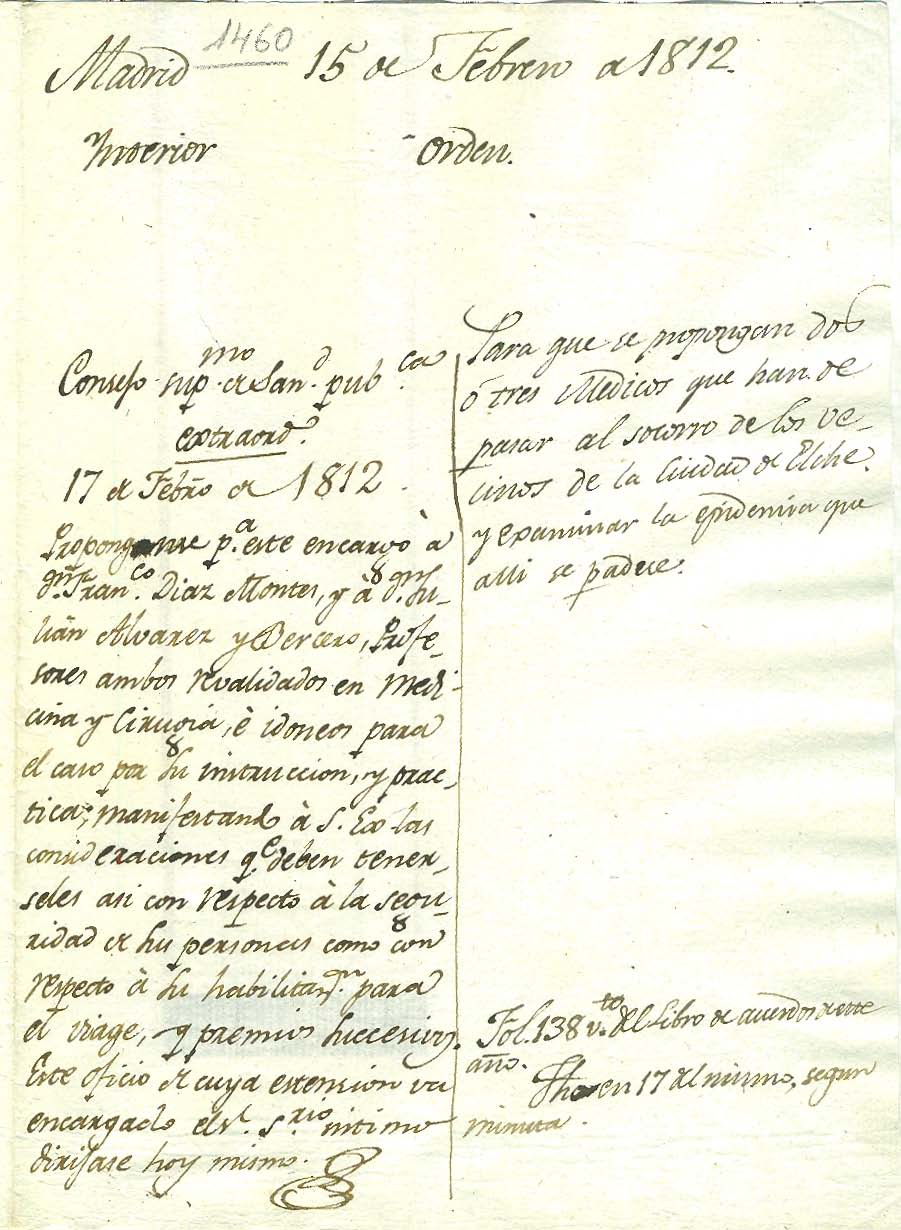 1460
Madrid 15 de Febrero de 1812.
Ynterior Orden.
Para que se propongan dos
ó tres Medicos que han de
pasar al socorro de los ve-
cinos de la Ciudad de Elche.
y examinar la epidemia que
alli se padece.
Consejo sup.mo de San.d pub.ca
extraord.o
17 de Febro de 1812.
Proponganse p.a este encargo à
dn. Fran.co Diaz Montes, y à dn. Ju-
lián Alvarez y Bercero, Profe-
sores ambos revalidados en Medi-
cina y Cirugia, è idoneos para
el caso por su instruccion, y prac-
tica; manifestando à S. Ex las
consideraciones q.e deben tener-
seles asi con respecto à la segu-
ridad de sus personas como con
respecto à su habilitaz.n para
el viage, y premios succesivos.
Este oficio de cuya extension va
encargado el Sr. S.rio intimo
dirijase hoy mismo.
Fol. 138 v.to del Libro de acuerdos de este
año.
Fho en 17 del mismo, segun
minuta.